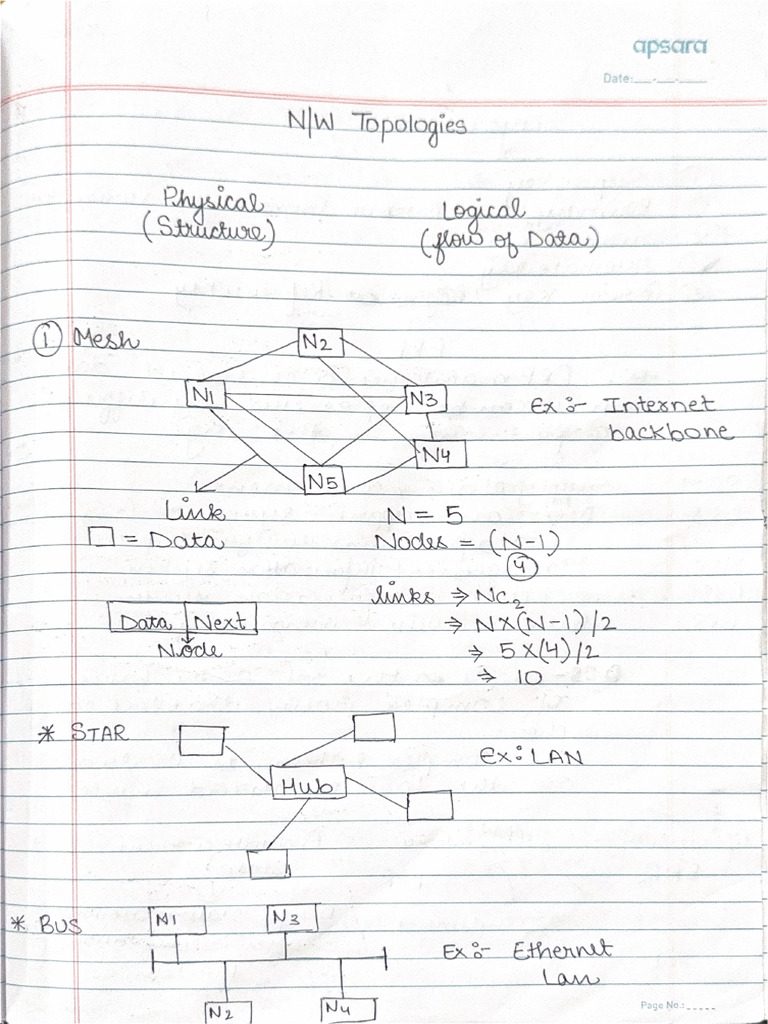 apsara
Date:__-__-__
N/W Topologies
Physical
(Structure)
Logical
(flow of Data)
① Mesh
N2
N1
N3
N4
N5
Ex :- Internet
backbone
Link
□ = Data
N = 5
Nodes = (N-1)
4
links ⇒ NC₂
⇒ N×(N-1)/2
⇒ 5×(4)/2
⇒ 10
Data Next
Node
* STAR
Hub
Ex: LAN
* BUS
N1
N3
N2
N4
Ex :- Ethernet
Lan
Page No.:_____